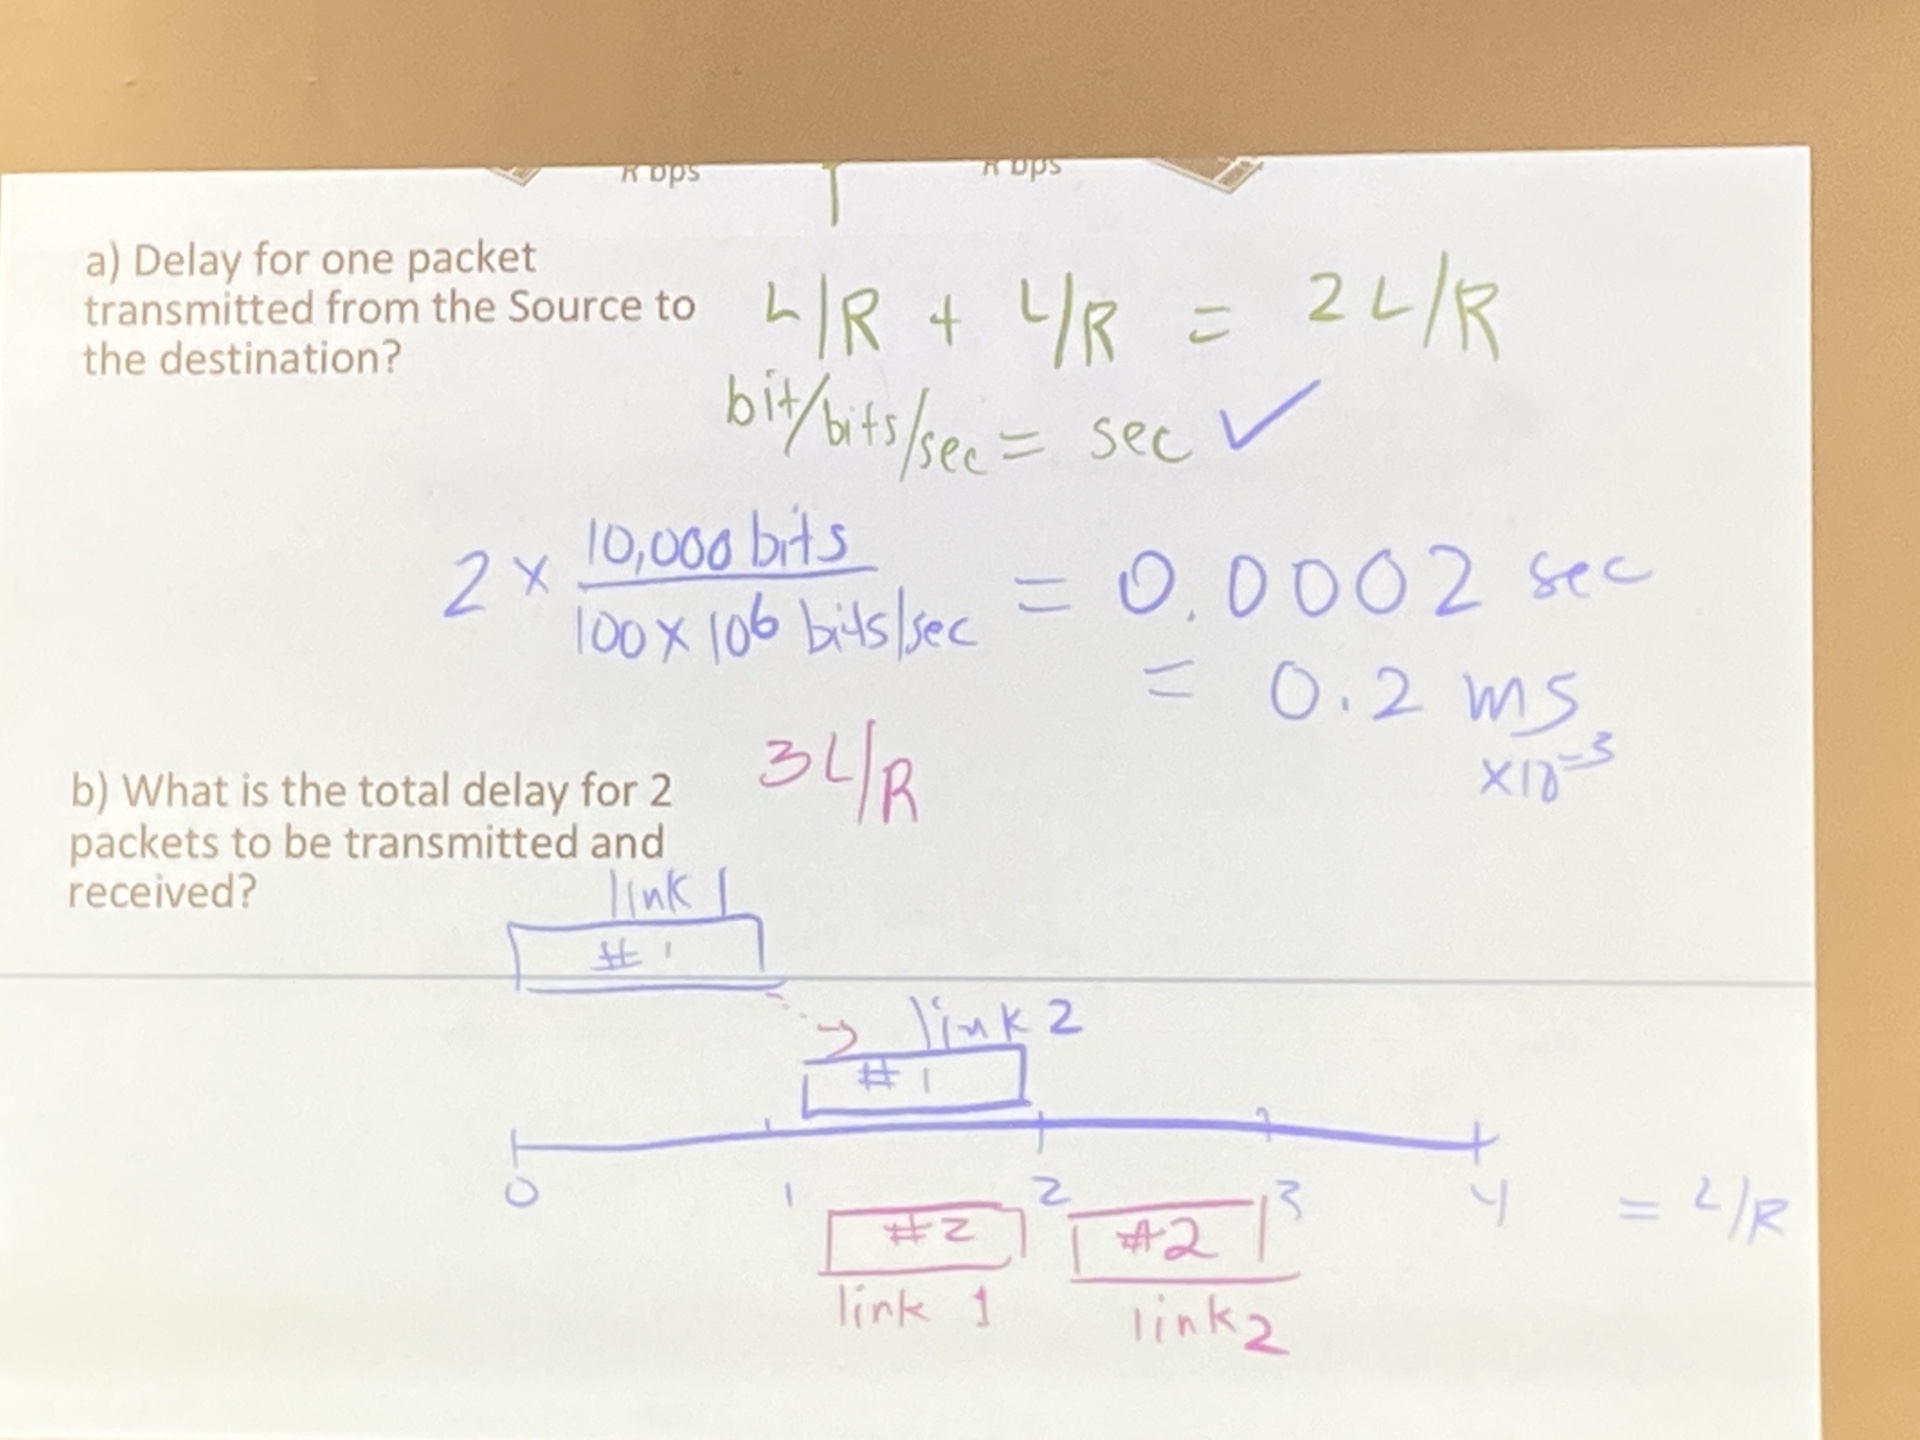 R bps R bps
a) Delay for one packet
transmitted from the Source to
the destination?
L/R + L/R = 2L/R
bit/bits/sec = sec ✓
2 × 10,000 bits / 100 × 10⁶ bits/sec = 0.0002 sec
= 0.2 ms
×10⁻³
3L/R
b) What is the total delay for 2
packets to be transmitted and
received?
link 1
#1
link 2
#1
0 1 2 3 4 = L/R
#2 #2
link 1 link 2